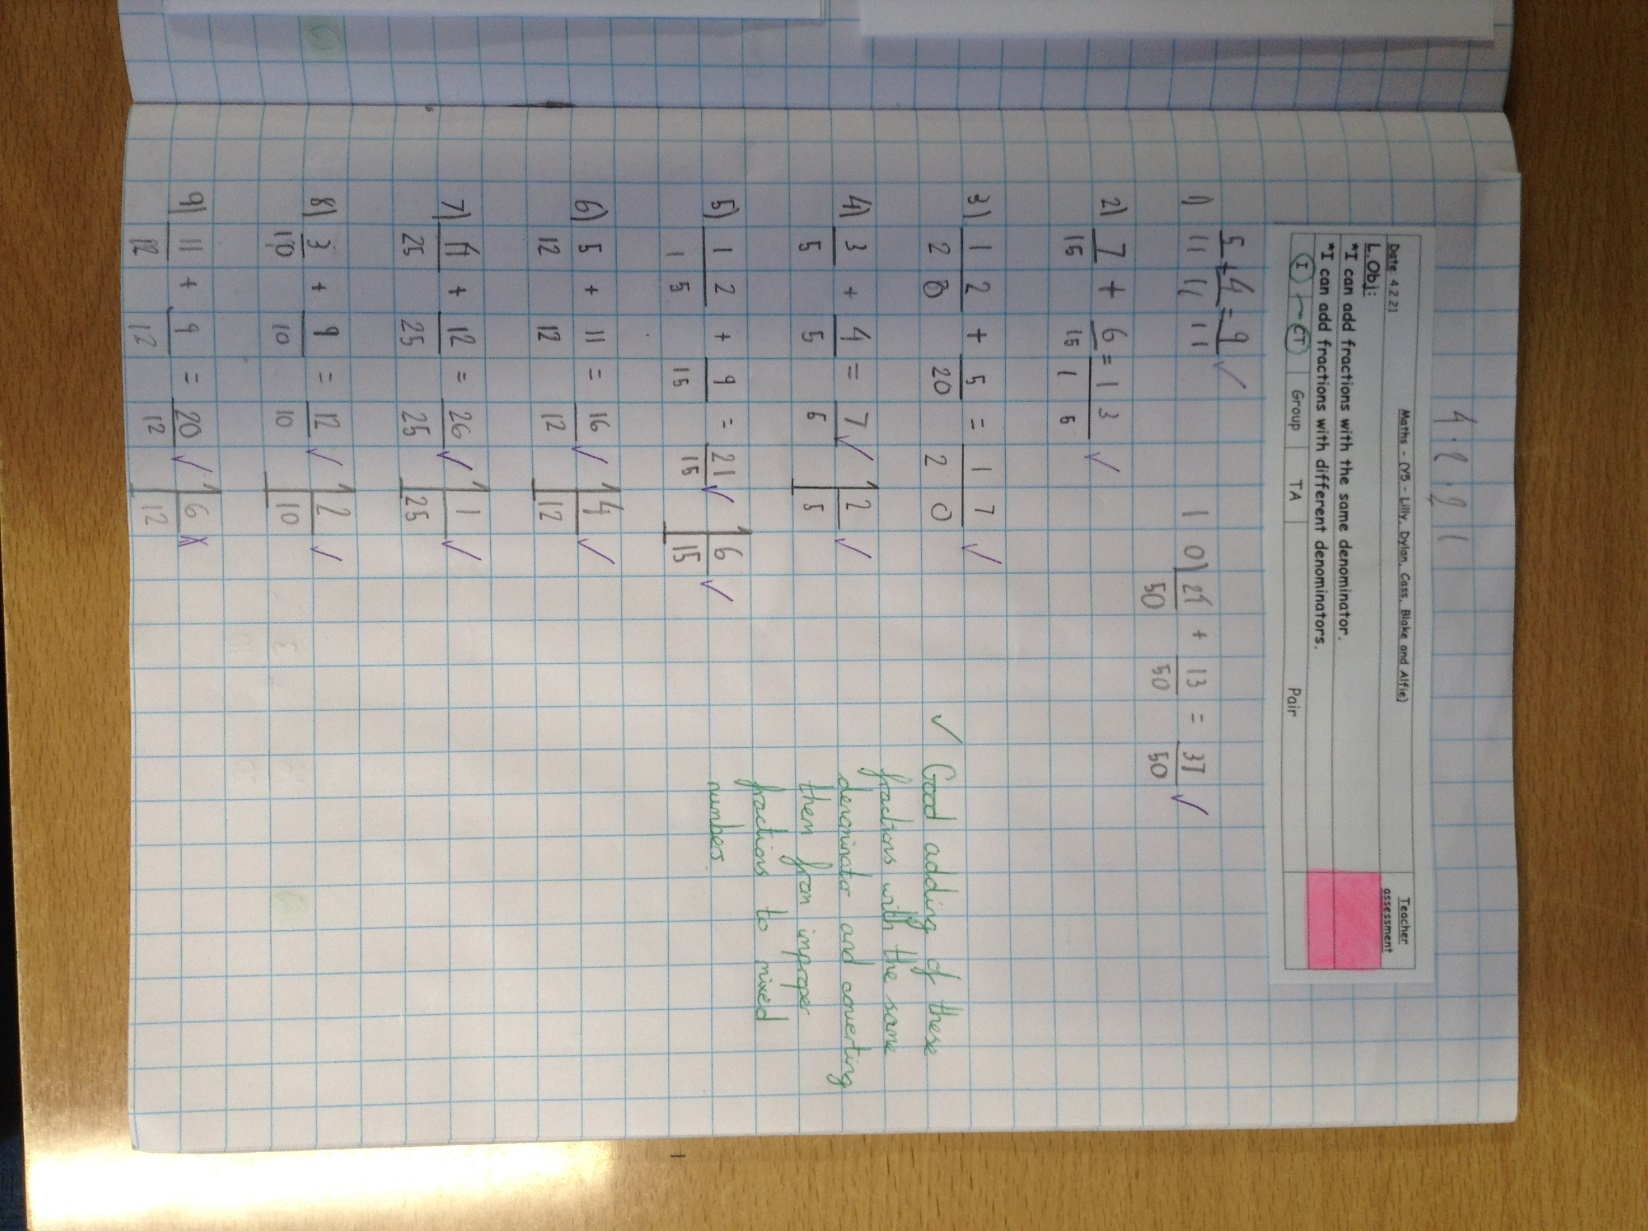 4.2.21
Date 4.2.21 Maths - (Y5 - Lilly, Dylan, Cass, Blake and Alfie) Teacher assessment
L.Obj:
*I can add fractions with the same denominator.
*I can add fractions with different denominators.
I CT Group TA Pair
1) 5/11 + 4/11 = 9/11 ✓
10) 24/50 + 13/50 = 37/50 ✓
2) 7/15 + 6/15 = 13/15 ✓
3) 12/20 + 5/20 = 17/20 ✓
4) 3/5 + 4/5 = 7/5 ✓ 1 2/5 ✓
5) 12/15 + 9/15 = 21/15 ✓ 1 6/15 ✓
6) 5/12 + 11/12 = 16/12 ✓ 1 4/12 ✓
7) 14/25 + 12/25 = 26/25 ✓ 1 1/25 ✓
8) 3/10 + 9/10 = 12/10 ✓ 1 2/10 ✓
9) 11/12 + 9/12 = 20/12 ✓ 1 6/12 x
✓ Good adding of these
fractions with the same
denominator and converting
them from improper
fractions to mixed
numbers.